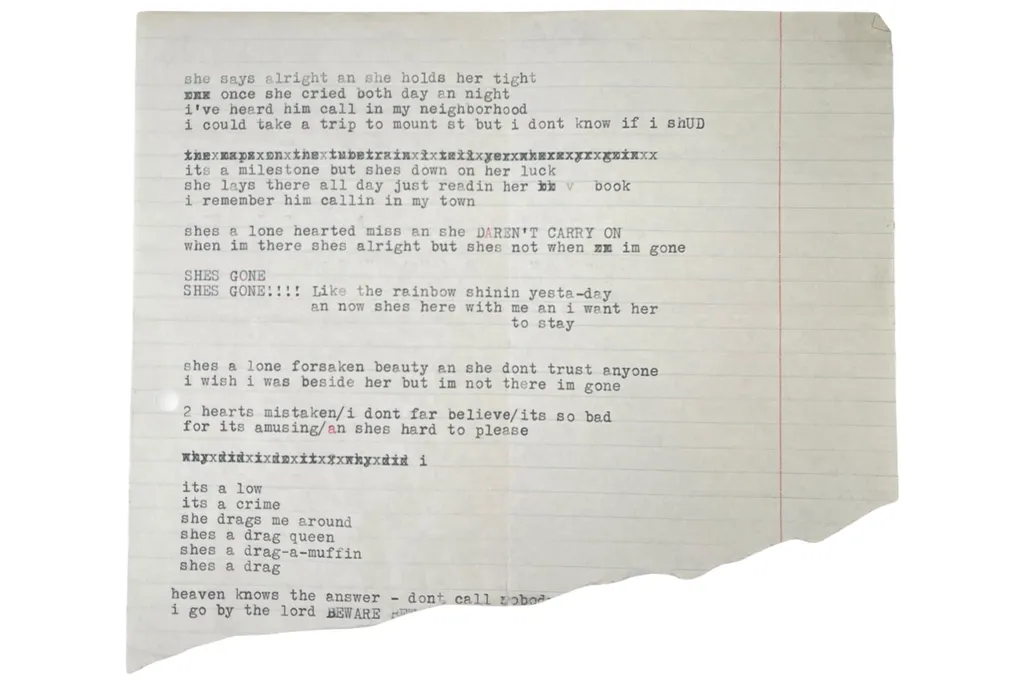 she says alright an she holds her tight
once she cried both day an night
i've heard him call in my neighborhood
i could take a trip to mount st but i dont know if i shUD
its a milestone but shes down on her luck
she lays there all day just readin her v book
i remember him callin in my town
shes a lone hearted miss an she DAREN'T CARRY ON
when im there shes alright but shes not when im gone
SHES GONE
SHES GONE!!!! Like the rainbow shinin yesta-day
an now shes here with me an i want her
to stay
shes a lone forsaken beauty an she dont trust anyone
i wish i was beside her but im not there im gone
2 hearts mistaken/i dont far believe/its so bad
for its amusing/an shes hard to please
whyxdidxixdoxitx?xwhyxdid i
its a low
its a crime
she drags me around
shes a drag queen
shes a drag-a-muffin
shes a drag
heaven knows the answer - dont call nobody
i go by the lord BEWARE